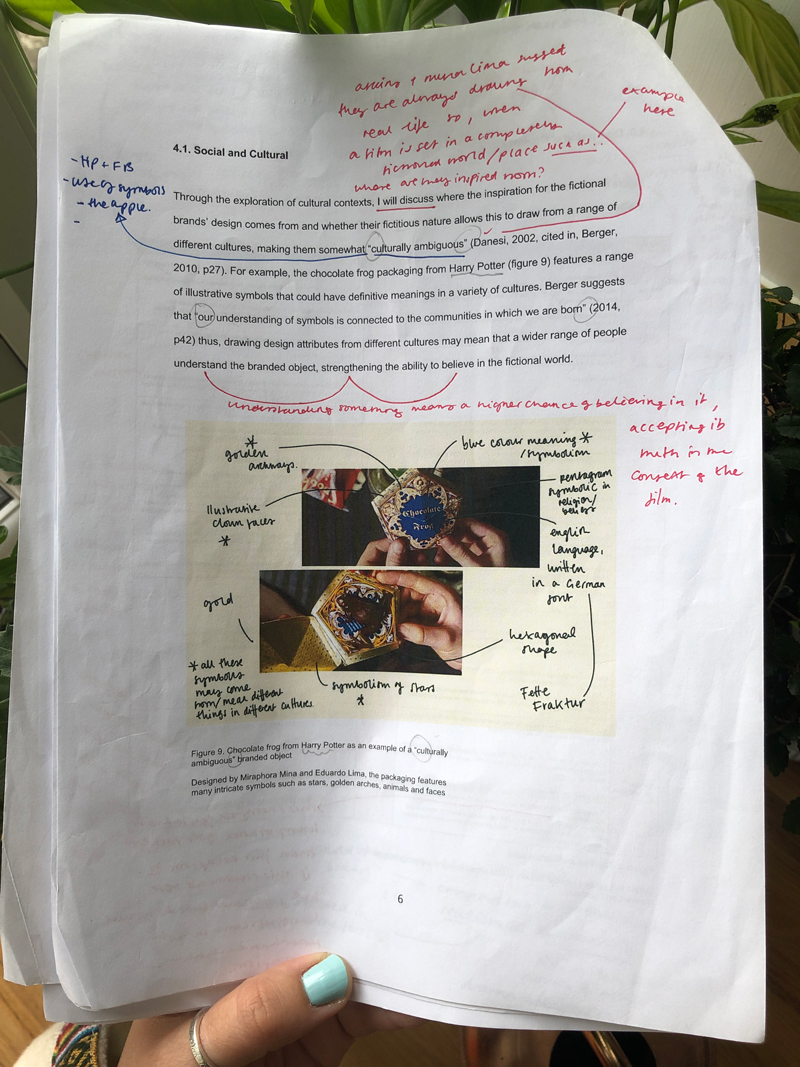 mina lima suggest
they are always drawing from
real life so, when
a film is set in a completely
fictional world/place such as..
where are they inspired from?
example
here
- HP + FB
- use of symbols
- the apple.
-
4.1. Social and Cultural
Through the exploration of cultural contexts, I will discuss where the inspiration for the fictional
brands' design comes from and whether their fictitious nature allows this to draw from a range of
different cultures, making them somewhat "culturally ambiguous" (Danesi, 2002, cited in, Berger,
2010, p27). For example, the chocolate frog packaging from Harry Potter (figure 9) features a range
of illustrative symbols that could have definitive meanings in a variety of cultures. Berger suggests
that "our understanding of symbols is connected to the communities in which we are born" (2014,
p42) thus, drawing design attributes from different cultures may mean that a wider range of people
understand the branded object, strengthening the ability to believe in the fictional world.
understanding something means a higher chance of believing in it,
accepting its
truth in the
context of the
film.
*
golden
archways.
blue colour meaning *
/symbolism
illustrative
clown faces
*
pentagram
symbolic in
religion/
beliefs
Chocolate
Frog
english
language,
written
in a German
font
gold
hexagonal
shape
* all these
symbols
may come
from/mean different
things in different cultures.
symbolism of stars
*
Fette
Fraktur
Figure 9. Chocolate frog from Harry Potter as an example of a "culturally
ambiguous" branded object
Designed by Miraphora Mina and Eduardo Lima, the packaging features
many intricate symbols such as stars, golden arches, animals and faces
6